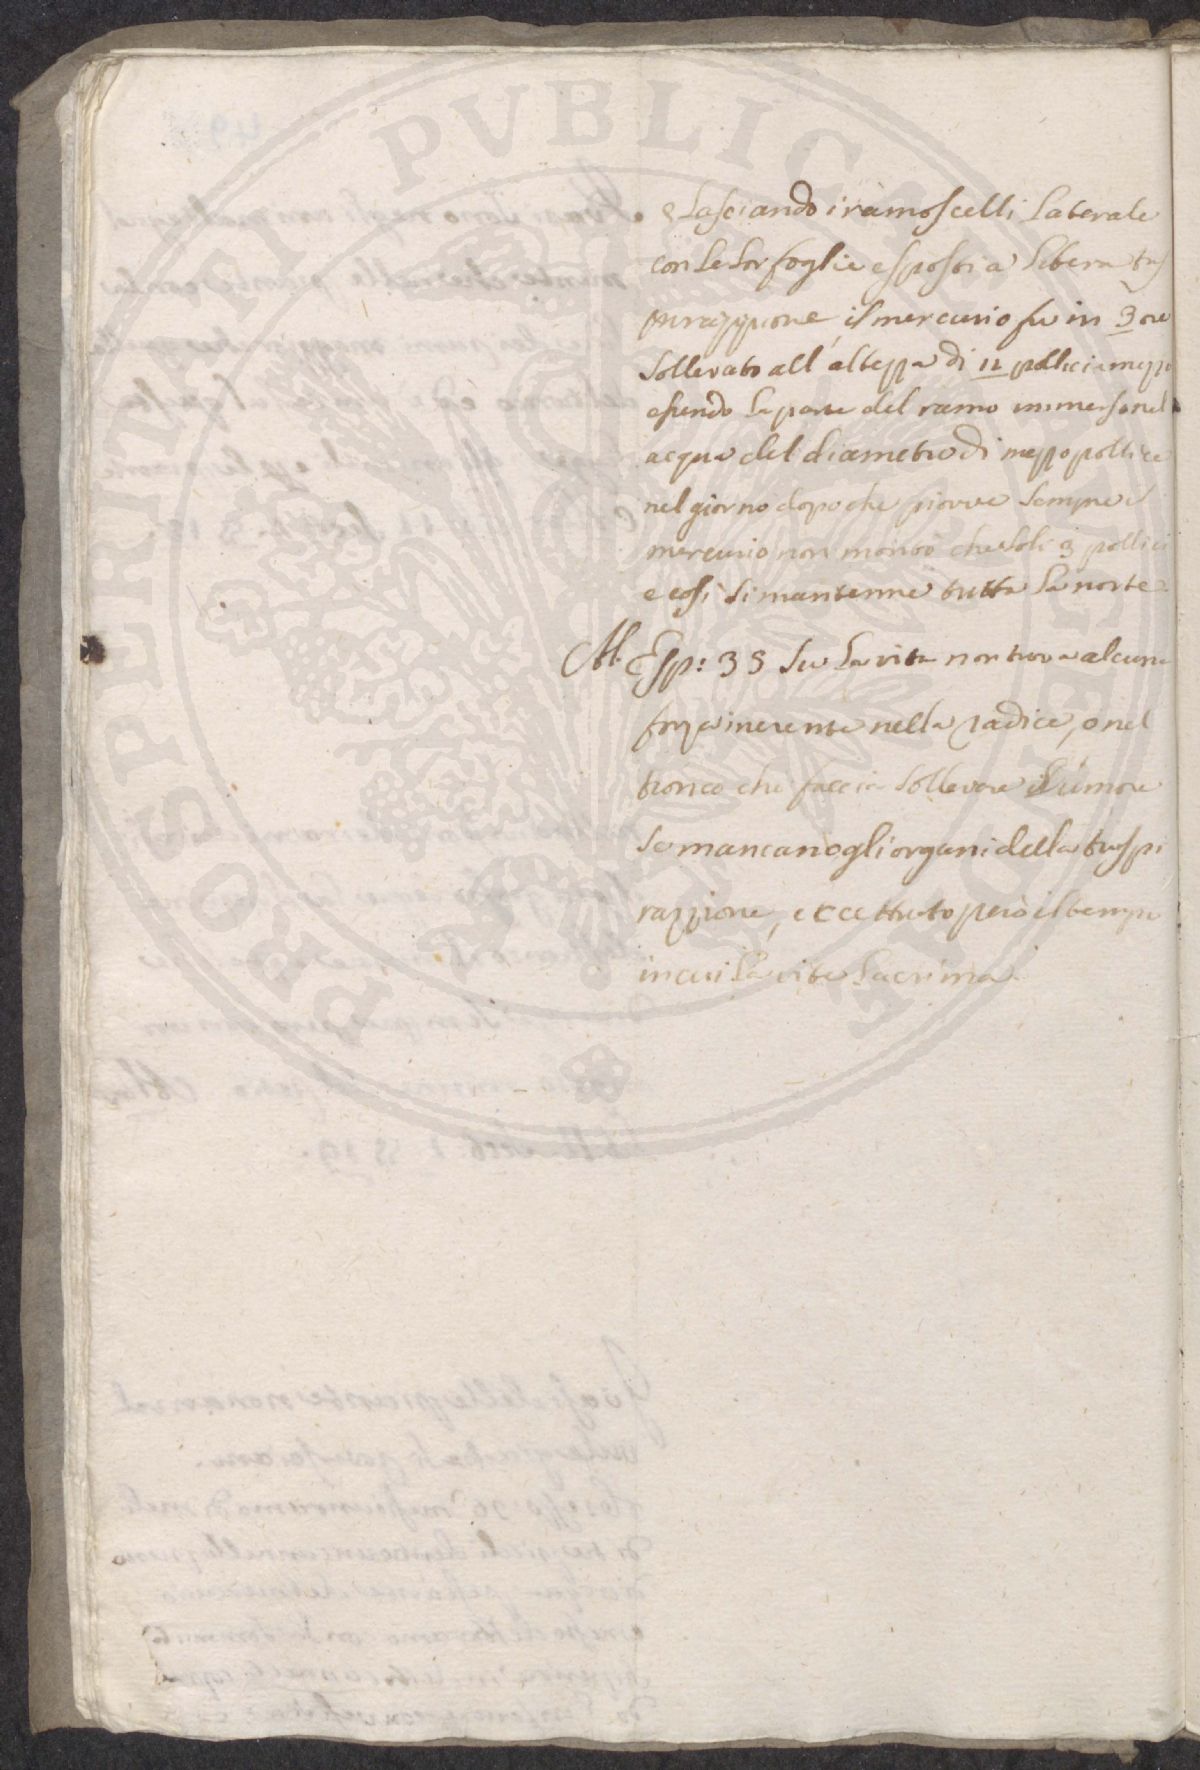 e lasciando i ramoscelli laterale
con le lor foglie esposti a libera tras
pirazzione, il mercurio fu in 3 ore
sollevato all' altezza di 12 pollici e mezzo
essendo la parte del ramo immerso nel
acqua del diametro di mezzo pollice
nel giorno dopo che piovve sempre il
mercurio non montò che soli 3 pollici
e così si mantenne tutta la notte.
All. Esp: 35 su la vite non trova alcuna
forza inerente nella radice, o nel
tronco che faccia sollevare l'umore
se mancano gli organi della traspi
razzione, eccettuato però il tempo
in cui la vite lacrima.